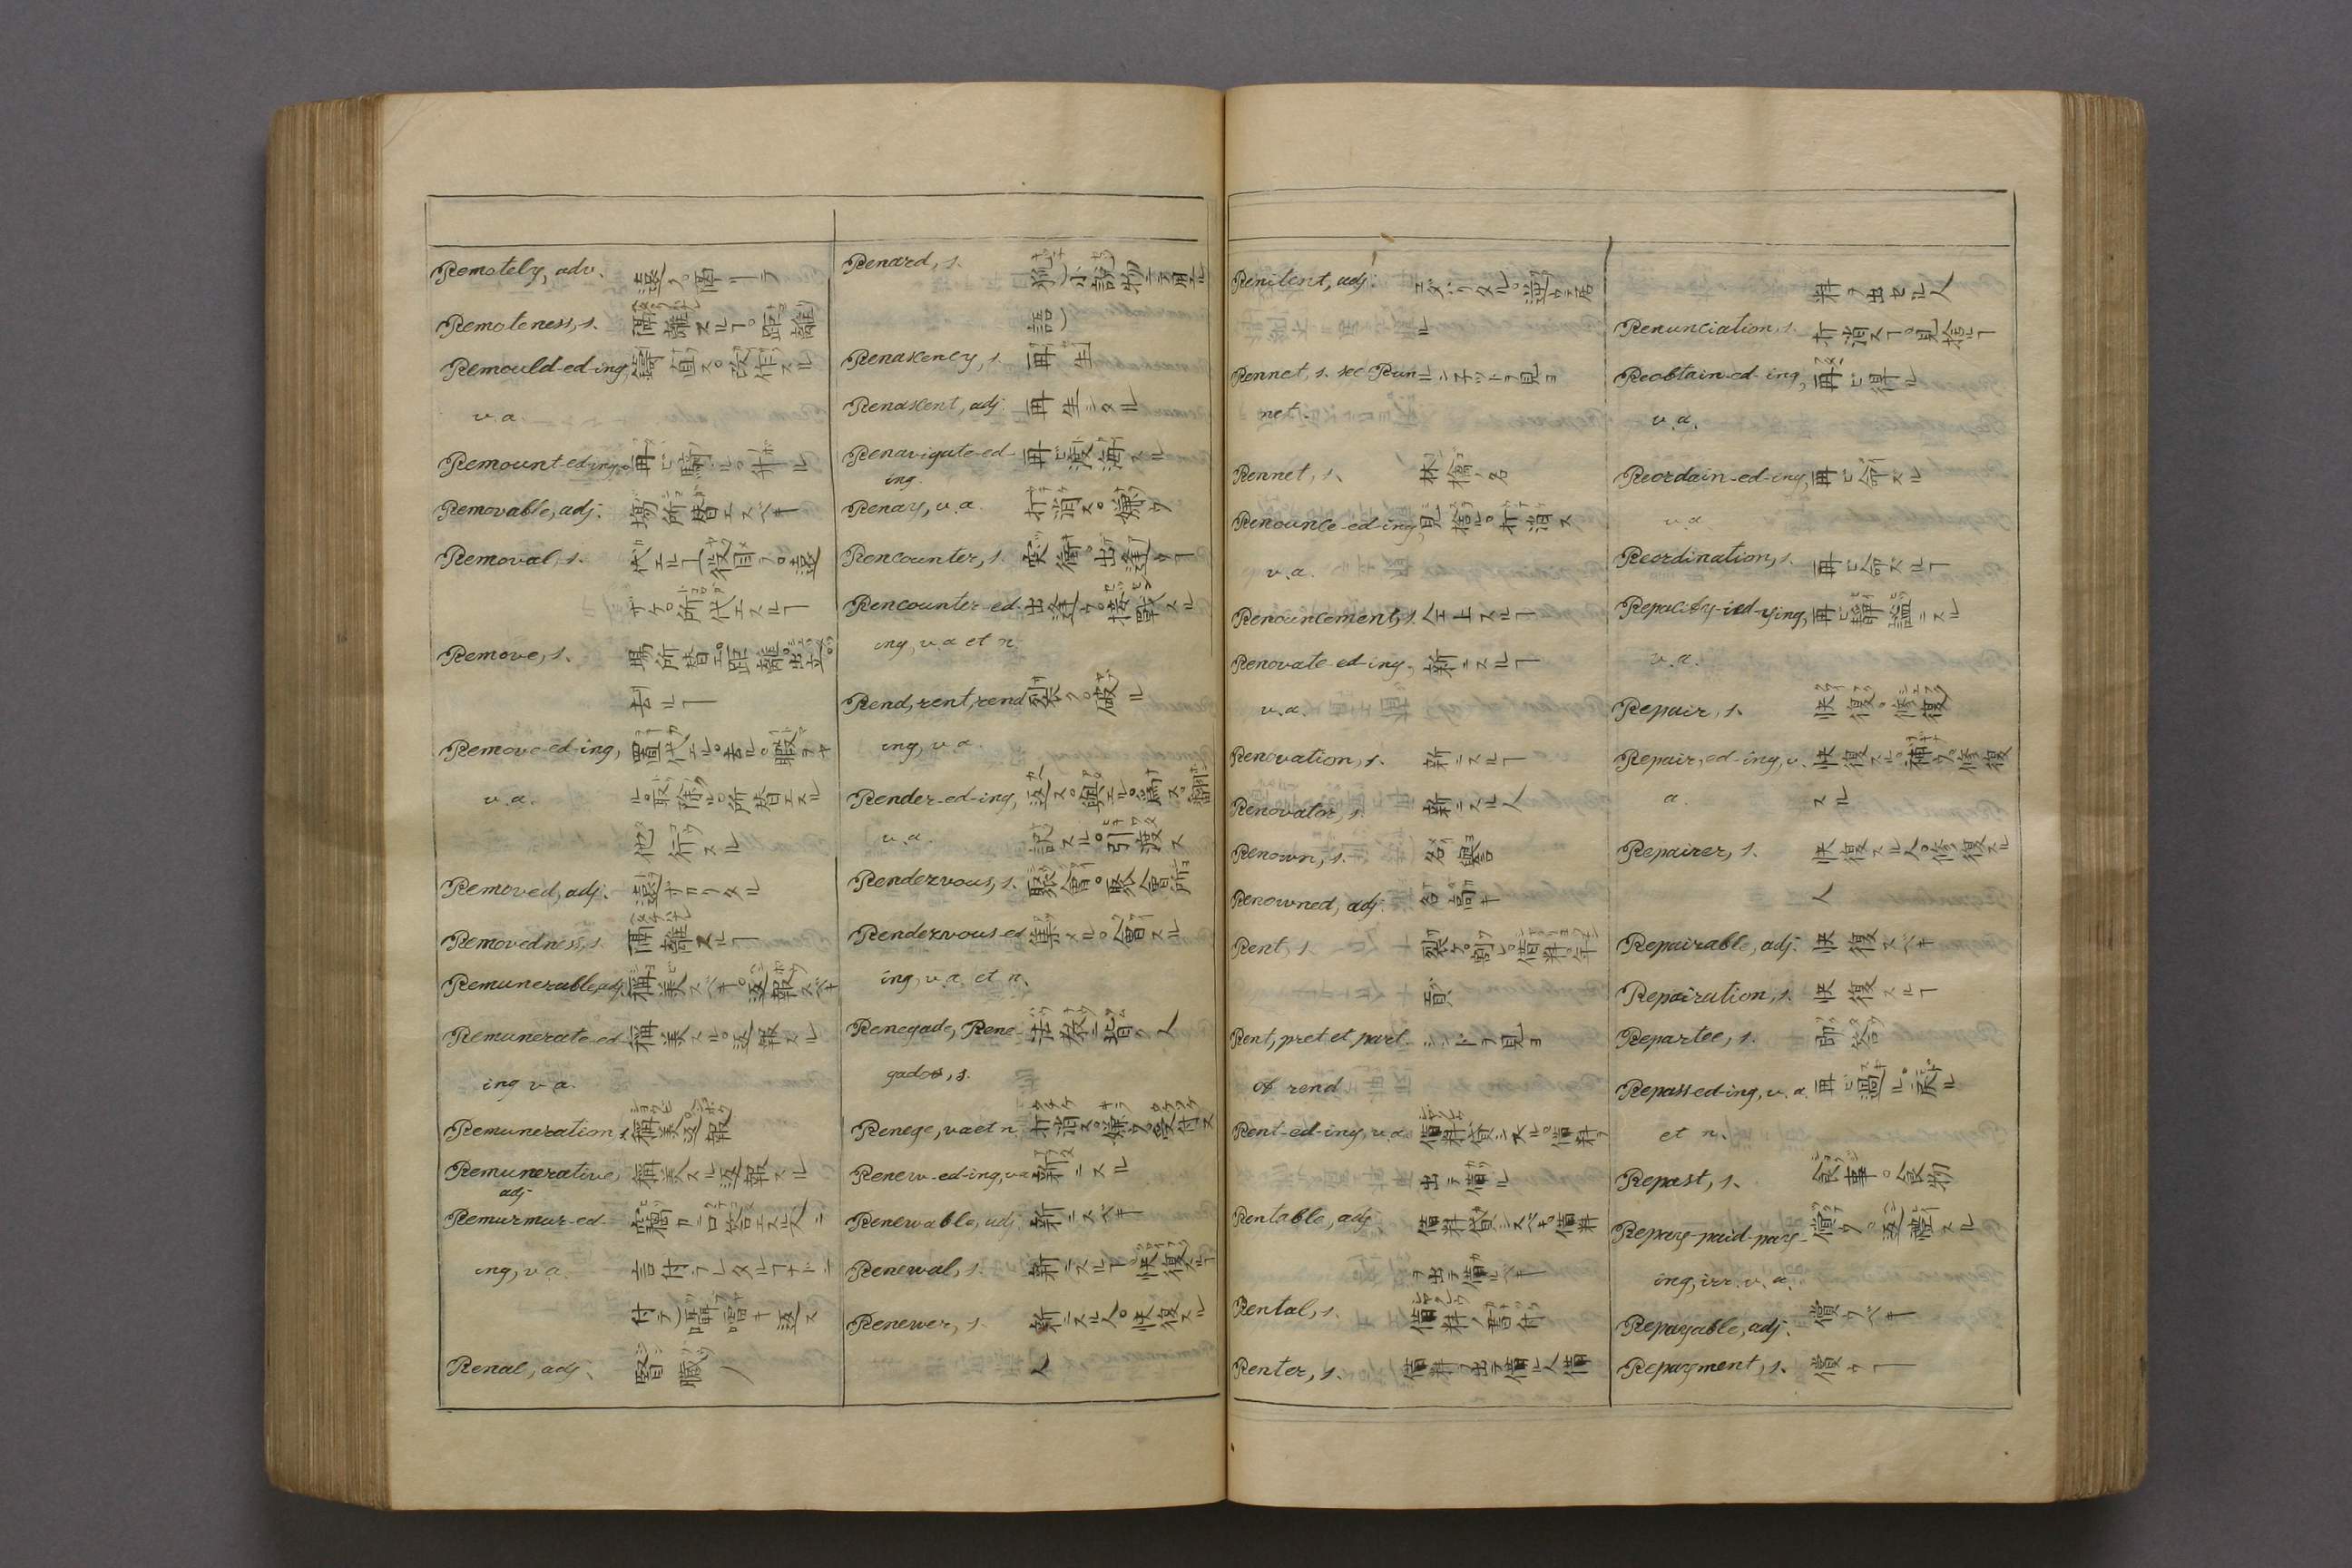 Remotely, adv. 遠ク。隔リテ
Remoteness, s. 隔離スルヿ。距離
Remould-ed-ing, 鋳直ス。改作スル
v. a.
Remount-ed-ing, 再ビ騎ル。升ル
Removable, adj. 場所替エスベキ
Removal, s. 代エルヿ役目ノ。遠
ザケ。所代エスルヿ
Remove, s. 場所替エ。距離。出立。
去ルヿ
Remove-ed-ing, 置代エル。去ル。暇ヲヤ
v. a. ル。取除ル。所替エスル
他行スル
Removed, adj. 遠ザカリタル
Removedness, s. 隔離スルヿ
Remunerable, adj. 褒美スベキ。返報スベキ
Remunerate-ed- 褒美スル。返報スル
ing v. a.
Remuneration, s. 褒美返報
Remunerative, 褒美スル返報スル
adj
Remurmur-ed-
ing, v. a. 言付ラレタルヿナドニ
返ス
Renal, adj. 腎臓ノ
Renard, s. 狐(小説物ニテ用ル
語)
Renascency, s. 再生
Renascent, adj. 再生シタル
Renavigate-ed- 再ビ渡海スル
ing.
Renay, v. a. 打消ス。嫌ウ
Rencounter, s. 突衝。出逢ウヿ
Rencounter-ed- 出逢ウ。接戦スル
ing, v. a et n.
Rend, rent, rend 裂ク。破ル
ing, v. a.
Render-ed-ing, 返ス。與エル。為ス。翻
v. a. 訳スル。引渡ス
Rendezvous, s. 聚會。聚會所
Rendezvous-ed- 集メル。會スル
ing, v. a. et n.
Renegade, Rene- 法教ニ背ク人
gado, s.
Renege, v a et n. 打消ス。嫌ウ。受付ズ
Renew-ed-ing, v a 新ニスル
Renewable, adj. 新ニスベキ
Renewal, s. 新ニスルヿ。恢復スルヿ
Renewer, s. 新ニスル人。恢復スル
人
Renitent, adj.
ル
Rennet, s. see Run ルンネットヲ見ヨ
net.
Rennet, s. 林檎ノ名
Renounce-ed-ing, 見捨ル。打消ス
v. a.
Renouncement, s. 仝上スルヿ
Renovate-ed-ing, 新ニスル
v. a.
Renovation, s. 新ニスルヿ
Renovator, s. 新ニスル人
Renown, s. 名譽
Renowned, adj. 名高キ
Rent, s. 裂ケ。割レ。借料。年
貢
Rent, pret et part. レンドヲ見ヨ
of rend
Rent-ed-ing, v. a. 借料貸シスル。借料ヲ
出テ借ル
Rentable, adj. 借料貸シスベキ。借料
ヲ出テ借ルベキ
Rental, s. 借料ノ書付
Renter, s. 借料ヲ出テ借ル人借
料ヲ出セル人
Renunciation, s. 打消スヿ。見捨ルヿ
Reobtain-ed-ing, 再ビ得ル
v. a.
Reordain-ed-ing, 再ビ命スル
v. a.
Reordination, s. 再ビ命スルヿ
Repacify-ied-ying, 再ビ静謐ニスル
v. a.
Repair, s. 恢復。修復
Repair-ed-ing, v. 恢復スル。補ウ。修復
a. スル
Repairer, s. 恢復スル人。修復スル
人
Repairable, adj. 恢復スベキ
Repairation, s. 恢復スルヿ
Repartee, s. 即答
Repass-ed-ing, v. a. 再ビ過ル。戻ル
et n.
Repast, s. 食事。食物
Repay-paid-pay- 償ウ。返濟スル
ing, irr. v. a.
Repayable, adj. 償ウベキ
Repayment, s. 償ウヿ